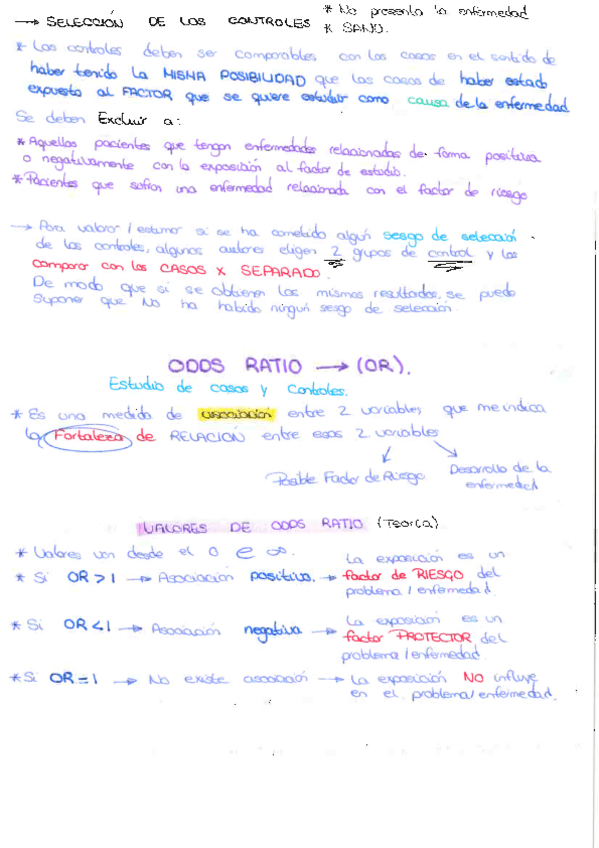 → SELECCIÓN DE LOS CONTROLES * No presenta la enfermedad
* SANO.
* Los controles deben ser comparables con los casos en el sentido de
haber tenido la MISMA POSIBILIDAD que los casos de haber estado
expuesto al FACTOR que se quiere estudiar como causa de la enfermedad
Se deben Excluir a:
* Aquellos pacientes que tengan enfermedades relacionadas de forma positiva
o negativamente con la exposición al factor de estudio.
* Pacientes que sufran una enfermedad relacionada con el factor de riesgo
→ Para valorar / estimar si se ha cometido algún sesgo de selección
de los controles, algunos autores eligen 2 grupos de control y los
comparar con los CASOS X SEPARADO.
De modo que si se obtienen los mismos resultados, se puede
suponer que NO ha habido ningún sesgo de selección.
ODDS RATIO → (OR).
Estudio de casos y Controles.
* Es una medida de asociación entre 2 variables, que me indica
la Fortaleza de RELACIÓN entre esas 2 variables
Posible Factor de Riesgo
Desarrollo de la
enfermedad
VALORES DE ODDS RATIO (Teórica)
* Valores van desde el 0 e ∞.
* Si OR > 1 → Asociación positiva. → La exposición es un
factor de RIESGO del
problema / enfermedad.
* Si OR < 1 → Asociación negativa → La exposición es un
factor PROTECTOR del
problema / enfermedad.
* Si OR = 1 → No existe asociación → La exposición NO influye
en el problema / enfermedad.